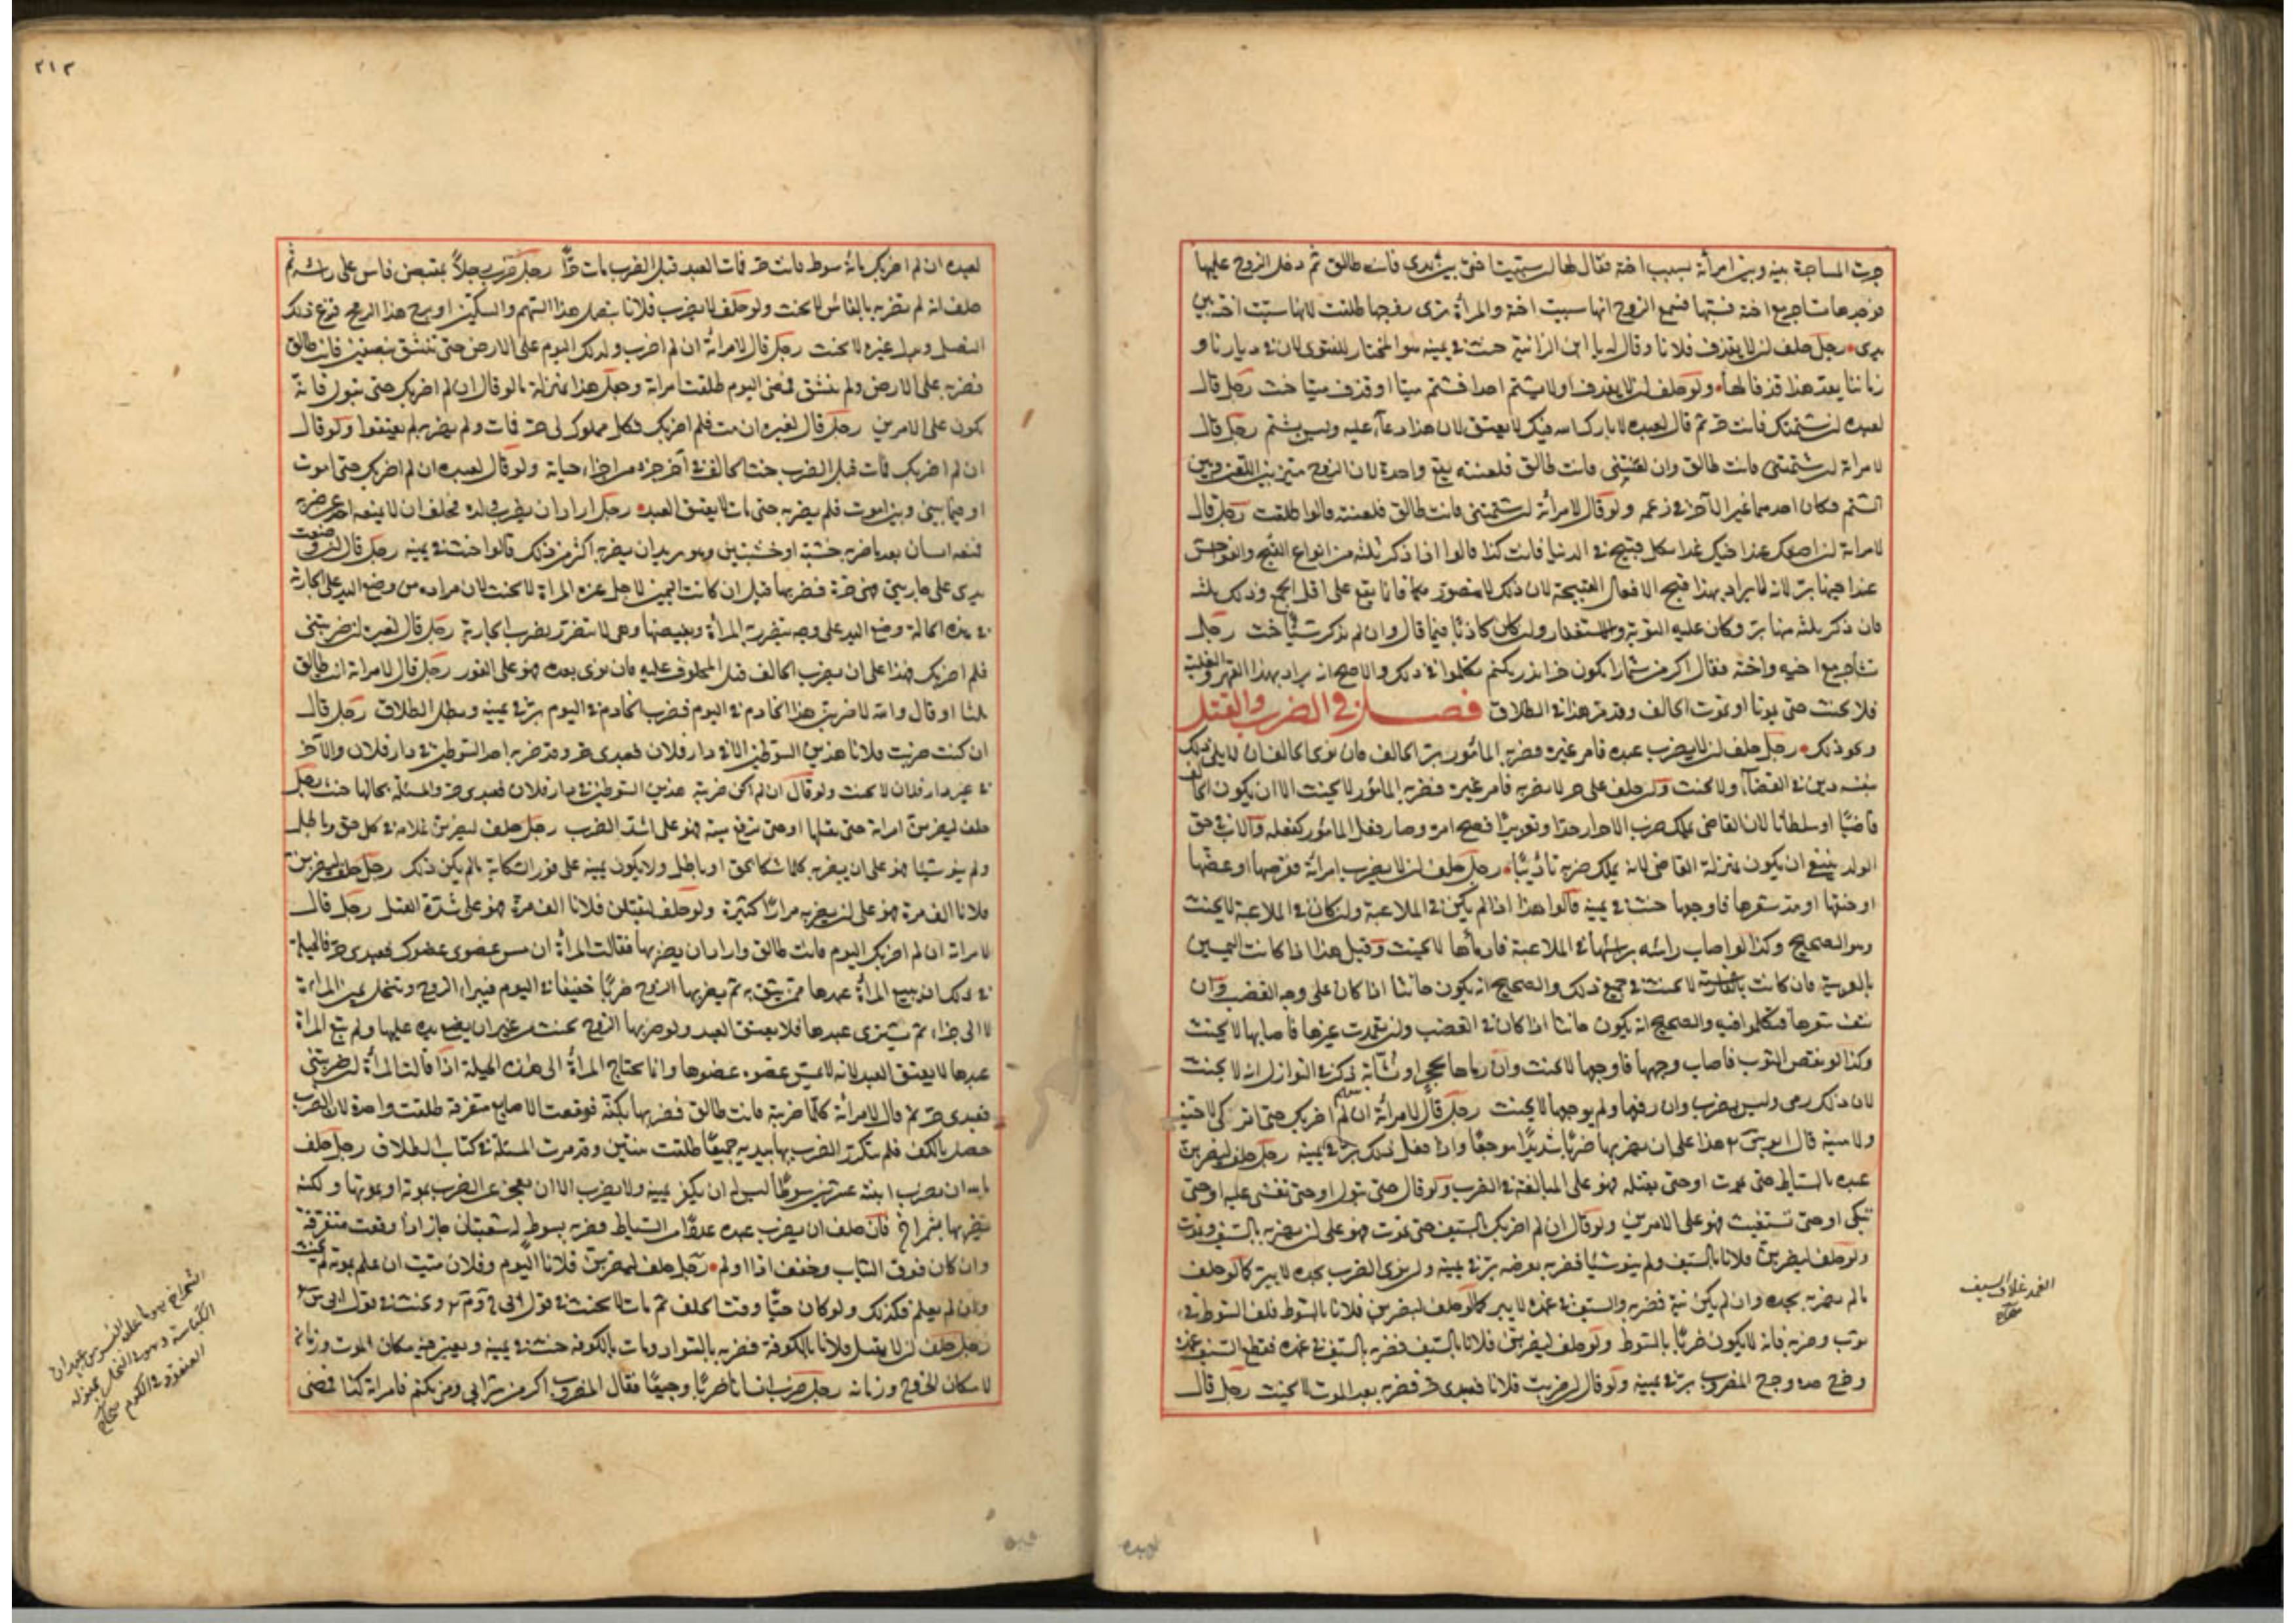 جرت المشاجرة بينه وبين امرأته بسبب اخته فقال لها ان سببت اختي بين يدي فانت طالق ثم دخل الزوج عليها
فوجدها تشاجر مع اخته فسبتها فسمع الزوج انها سببت اخته والمرأة ترى زوجها طلقت لانها سبت اخته بين
يدي رجل حلف ان لا يقذف فلانا وقال له يا ابن الزانية حنث في يمينه هو المختار للفتوى لان في ديارنا و
زماننا يعد هذا قذفا لها ولو حلف ان لا يقذف او لا يشتم احدا فشتم ميتا او قذف ميتا حنث رجل قال
لعبده ان شتمتك فانت حر ثم قال لعبده لا بارك الله فيك لا يعتق لان هذا دعاء عليه وليس بشتم رجل قال
لامرأته ان شتمتني فانت طالق وان لعنتني فانت طالق فلعنته يقع واحدة لان الزوج ميز بين اللعن وبين
الشتم فكان احدهما غير الآخر في زعمه ولو قال لامرأته ان شتمتني فانت طالق فلعنته قالوا طلقت رجل قال
لامرأته ان لم اصنعك غدا فيك غدا بكل قبيح في الدنيا فانت كذا قالوا اذا ذكر ثلثة من انواع القبح والفواحش
عندا حينها بر لانه لا يراد بهذا قبيح الافعال القبيحة لان ذلك لا يتصور عرفا فانما يقع على اقل الجمع وذلك ثلثة
فان ذكر ثلثة منها بر وكان عليه التوبة والاستغفار وان كان كاذبا فيما قال وان لم يذكر شيئا حنث رجل
تشاجر مع اخيه واخته فقال اكر من شمارا بكون خر اندر نكنم تكلموا في ذلك والاصح انه يراد بهذا القهر والغلبة
فلا يحنث حتى يموتا او يموت الحالف وقد مر هذا في الطلاق فصل في الضرب والقتل
ونحو ذلك رجل حلف ان لا يضرب عبده فامر غيره فضربه المأمور بر الحالف فان نوى الحالف ان لا يلي ذلك
بنفسه دين في القضاء ولا يحنث ولو حلف على حر لا يضربه فامر غيره فضربه المأمور لا يحنث الا ان يكون الحالف
قاضيا او سلطانا لان القاضي يملك ضرب الاحرار حدا وتعزيرا فصح امره وصار فعل المأمور كفعله والاب في حق
الولد ينبغي ان يكون بمنزلة القاضي لانه يملك ضربه تأديبا رجل حلف ان لا يضرب امرأته فقرصها او عضها
او خنقها او مد شعرها فاوجعها حنث في يمينه قالوا هذا اذا لم يكن في الملاعبة وان كان في الملاعبة لا يحنث
وهو الصحيح وكذا لو اصاب رأسه برأسها في الملاعبة فادماها لا يحنث وقيل هذا اذا كانت اليمين
بالعربية فان كانت بالفارسية لا يحنث في جميع ذلك والصحيح انه يكون حانثا اذا كان على وجه الغضب وان
نتف شعرها فتكلموا فيه والصحيح انه يكون حانثا اذا كان في الغضب وان تعمدت غيرها فاصابها لا يحنث
وكذا لو نفض الثوب فاصاب وجهها فاوجعها لا يحنث وان رماها بحجر او نشابة ذكر في النوازل انه لا يحنث
لان ذلك رمي وليس بضرب وان دفعها ولم يوجعها لا يحنث رجل قال لامرأته ان لم اضربك حتى اتركك لا حية
ولا ميتة قال ابو يوسف هذا على ان يضربها ضربا شديدا موجعا واذا فعل ذلك بر في يمينه رجل حلف ليضربن
عبده بالسياط حتى يموت او حتى يقتله فهو على المبالغة في الضرب ولو قال حتى يبول او حتى تغشى عليه او حتى
تبكي او حتى تستغيث فهو على الامرين ولو قال ان لم اضربك بالسيف حتى تموت فهو على ان يضربه بالسيف ويموت
ولو حلف ليضربن فلانا بالسيف ولم ينو شيئا فضربه بعرضه بر في يمينه وان نوى الضرب بحده لا يبر كما لو حلف
ما لم يضربه بحده وان لم يكن نية فضربه والسيف في غمده لا يبر كما لو حلف ليضربن فلانا بالسوط فلف السوط في
ثوب وضربه فانه لا يكون ضربا بالسوط ولو حلف ليضربن فلانا بالسيف فضربه بالسيف في غمده فقطع السيف غمده
وخرج حده وجرح المضروب بر في يمينه ولو قال ان ضربت فلانا فعبدي حر فضربه بعد الموت لا يحنث رجل قال
الغمد غلاف السيف
صحاح
لعبده
٢١٣
لعبده ان لم اضربك مائة سوط فانت حر فمات العبد قبل الضرب مات حرا رجل ضرب رجلا بمقبض فاس على رأسه ثم
حلف انه لم يضربه بالفاس لا يحنث ولو حلف لا يضرب فلانا بنصل هذا السهم والسكين او بزج هذا الرمح فنزع ذلك
النصل وجعل غيره لا يحنث رجل قال لامرأته ان لم اضرب ولدك اليوم على الارض حتى ينشق بنصفين فانت طالق
فضربه على الارض ولم ينشق فمضى اليوم طلقت امرأته وجعل هذا بمنزلة ما لو قال ان لم اضربك حتى تبول فانه
يكون على الامرين رجل قال لغيره ان مت فلم اضربك فكل مملوك لي حر فمات ولم يضربه لم يعتقوا ولو قال
ان لم اضربك فمات قبل الضرب حنث الحالف في آخر جزء من اجزاء حياته ولو قال لعبده ان لم اضربك حتى اموت
او فيما بيني وبين الموت فلم يضربه حتى مات لا يعتق العبد رجل اراد ان يضرب ولده فحلف ان لا يمنعه احد عن ضربه
فمنعه انسان بعد ما ضربه خشبة او خشبتين وهو يريد ان يضربه اكثر من ذلك قالوا حنث في يمينه رجل قال ان وضعت
يدي على جاريتي فهي حرة فضربها قيل ان كانت اليمين لاجل غيرة المرأة لا يحنث لان مراده من وضع اليد على الجارية
في هذه الحالة وضع اليد على وجه يتضرر به المرأة ويغيضها وهي لا تتضرر بضرب الجارية رجل قال لغيره ان ضربتني
فلم اضربك فهذا على ان يضرب الحالف قبل المحلوف عليه فان نوى بعده فهو على الفور رجل قال لامرأته انت طالق
ثلثا او قال والله لاضربن هذا الخادم في اليوم فضرب الخادم في اليوم بر في يمينه وبطل الطلاق رجل قال
ان كنت ضربت فلانا هذين السوطين الا في دار فلان فعبدي حر وقد ضربه احد السوطين في دار فلان والآخر
في غير دار فلان لا يحنث ولو قال ان لم اكن ضربته هذين السوطين في دار فلان فعبدي حر والمسئلة بحالها حنث رجل
حلف ليضربن امرأته حتى يقتلها او حتى ترفع ميتة فهو على اشد الضرب رجل حلف ليضربن غلامه في كل حق وباطل
ولم ينو شيئا فهو على ان يضربه كلما شكا بحق او باطل ولا يكون يمينه على فور الشكاية ما لم يكن ذلك رجل حلف ليضربن
فلانا الف مرة فهو على ان يضربه مرارا كثيرة ولو حلف ليقتلن فلانا الف مرة فهو على شدة القتل رجل قال
لامرأته ان لم اضربك اليوم فانت طالق واراد ان يضربها فقالت المرأة ان مس عضوي عضوك فعبدي حر فالحيلة
في ذلك ان يبيع المرأة عبدها ممن يثق به ثم يضربها الزوج ضربا خفيفا في اليوم فيبر الزوج وتنحل يمين المرأة
لا الى جزاء ثم يشتري عبدها فلا يعتق العبد ولو ضربها الزوج بخشب من غير ان يضع يده عليها ولم تبع المرأة
عبدها لا يعتق العبد لانه لا يمس عضوه عضوها وانما يحتاج المرأة الى هذه الحيلة اذا قالت المرأة ان ضربتني
فعبدي حر ثم قال لامرأته كلما ضربتك فانت طالق فضربها بكفه فوقعت الاصابع متفرقة طلقت واحدة لان الضرب
حصل بالكف فلم يتكرر الضرب بها بيديه جميعا طلقت ثنتين وقد مرت المسئلة في كتاب الطلاق رجل حلف
بالله ان يضرب ابنته عشرين سوطا ليس له ان يكفر يمينه ولا يضرب الا ان يعجز عن الضرب بموته او بموتها ولكنه
يضربها بشمراخ فان حلف ان يضرب عبده عددا من السياط فضربه بسوط له شعبتان جاز اذا وقعت متفرقة
وان كان فوق الثياب وخفف اذا اولم رجل حلف ليضربن فلانا اليوم وفلان ميت ان علم بموته لم يحنث
وان لم يعلم فكذلك ولو كان حيا وقت الحلف ثم مات لا يحنث في قول ابي ح وم ويحنث في قول ابي يوسف
رجل حلف ان لا يقتل فلانا بالكوفة فضربه بالسواد ومات بالكوفة حنث في يمينه ويعتبر فيه مكان الموت وزمانه
لا مكان الجرح وزمانه رجل ضرب انسانا ضربا وجيعا فقال المضروب اكر من سزاي وي نكنم فامرأته كذا فمضى